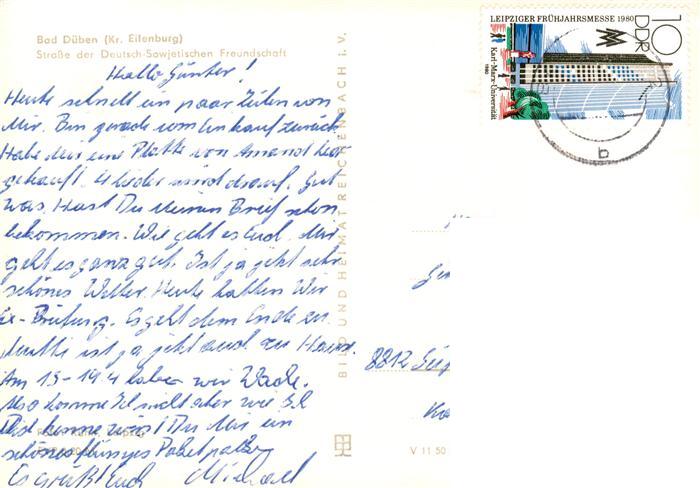 Bad Düben (Kr. Eilenburg)
Straße der Deutsch-Sowjetischen Freundschaft
Hallo Günter!
Heute schnell ein paar Zeilen von
Mir. Bin gerade vom Einkauf zurück
Habe Mir eine Platte von Amand
gekauft. 4 Lieder sind drauf. Gut
was. Hast Du Meinen Brief schon
bekommen. Wie geht es Euch. Mir
geht es ganz gut. Ist ja jetzt sehr
schönes Wetter. Heute hatten Wir
Ex-Prüfung. Es geht dem Ende zu
Mutti ist ja jetzt auch zu Hause.
Am 13-19.4 haben wir Wache.
Also komme Ich nicht aber wie
Du Mir ein
schönes
Es grüßt Euch Michael
BILD UND HEIMAT REICHENBACH i. V.
LEIPZIGER FRÜHJAHRSMESSE 1980
10
DDR
Karl-Marx-Universität
1980
b
8812
V 11 50